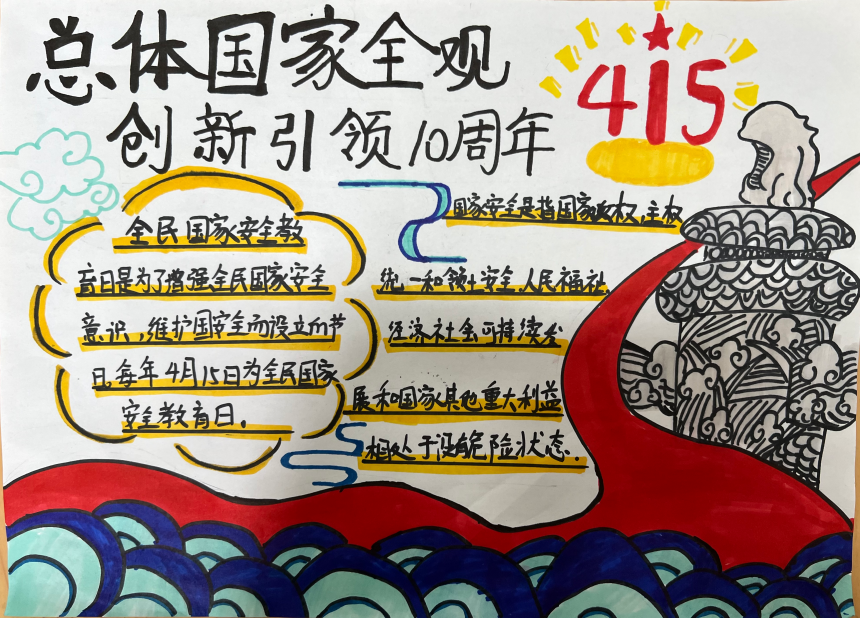 总体国家全观
创新引领10周年
415
全民国家安全教
育日是为了增强全民国家安全
意识,维护国安全而设立的节
日,每年4月15日为全民国家
安全教育日。
国家安全是指国家政权,主权
统一和领土安全,人民福祉,
经济社会可持续发
展和国家其他重大利益
相处于没有危险状态.